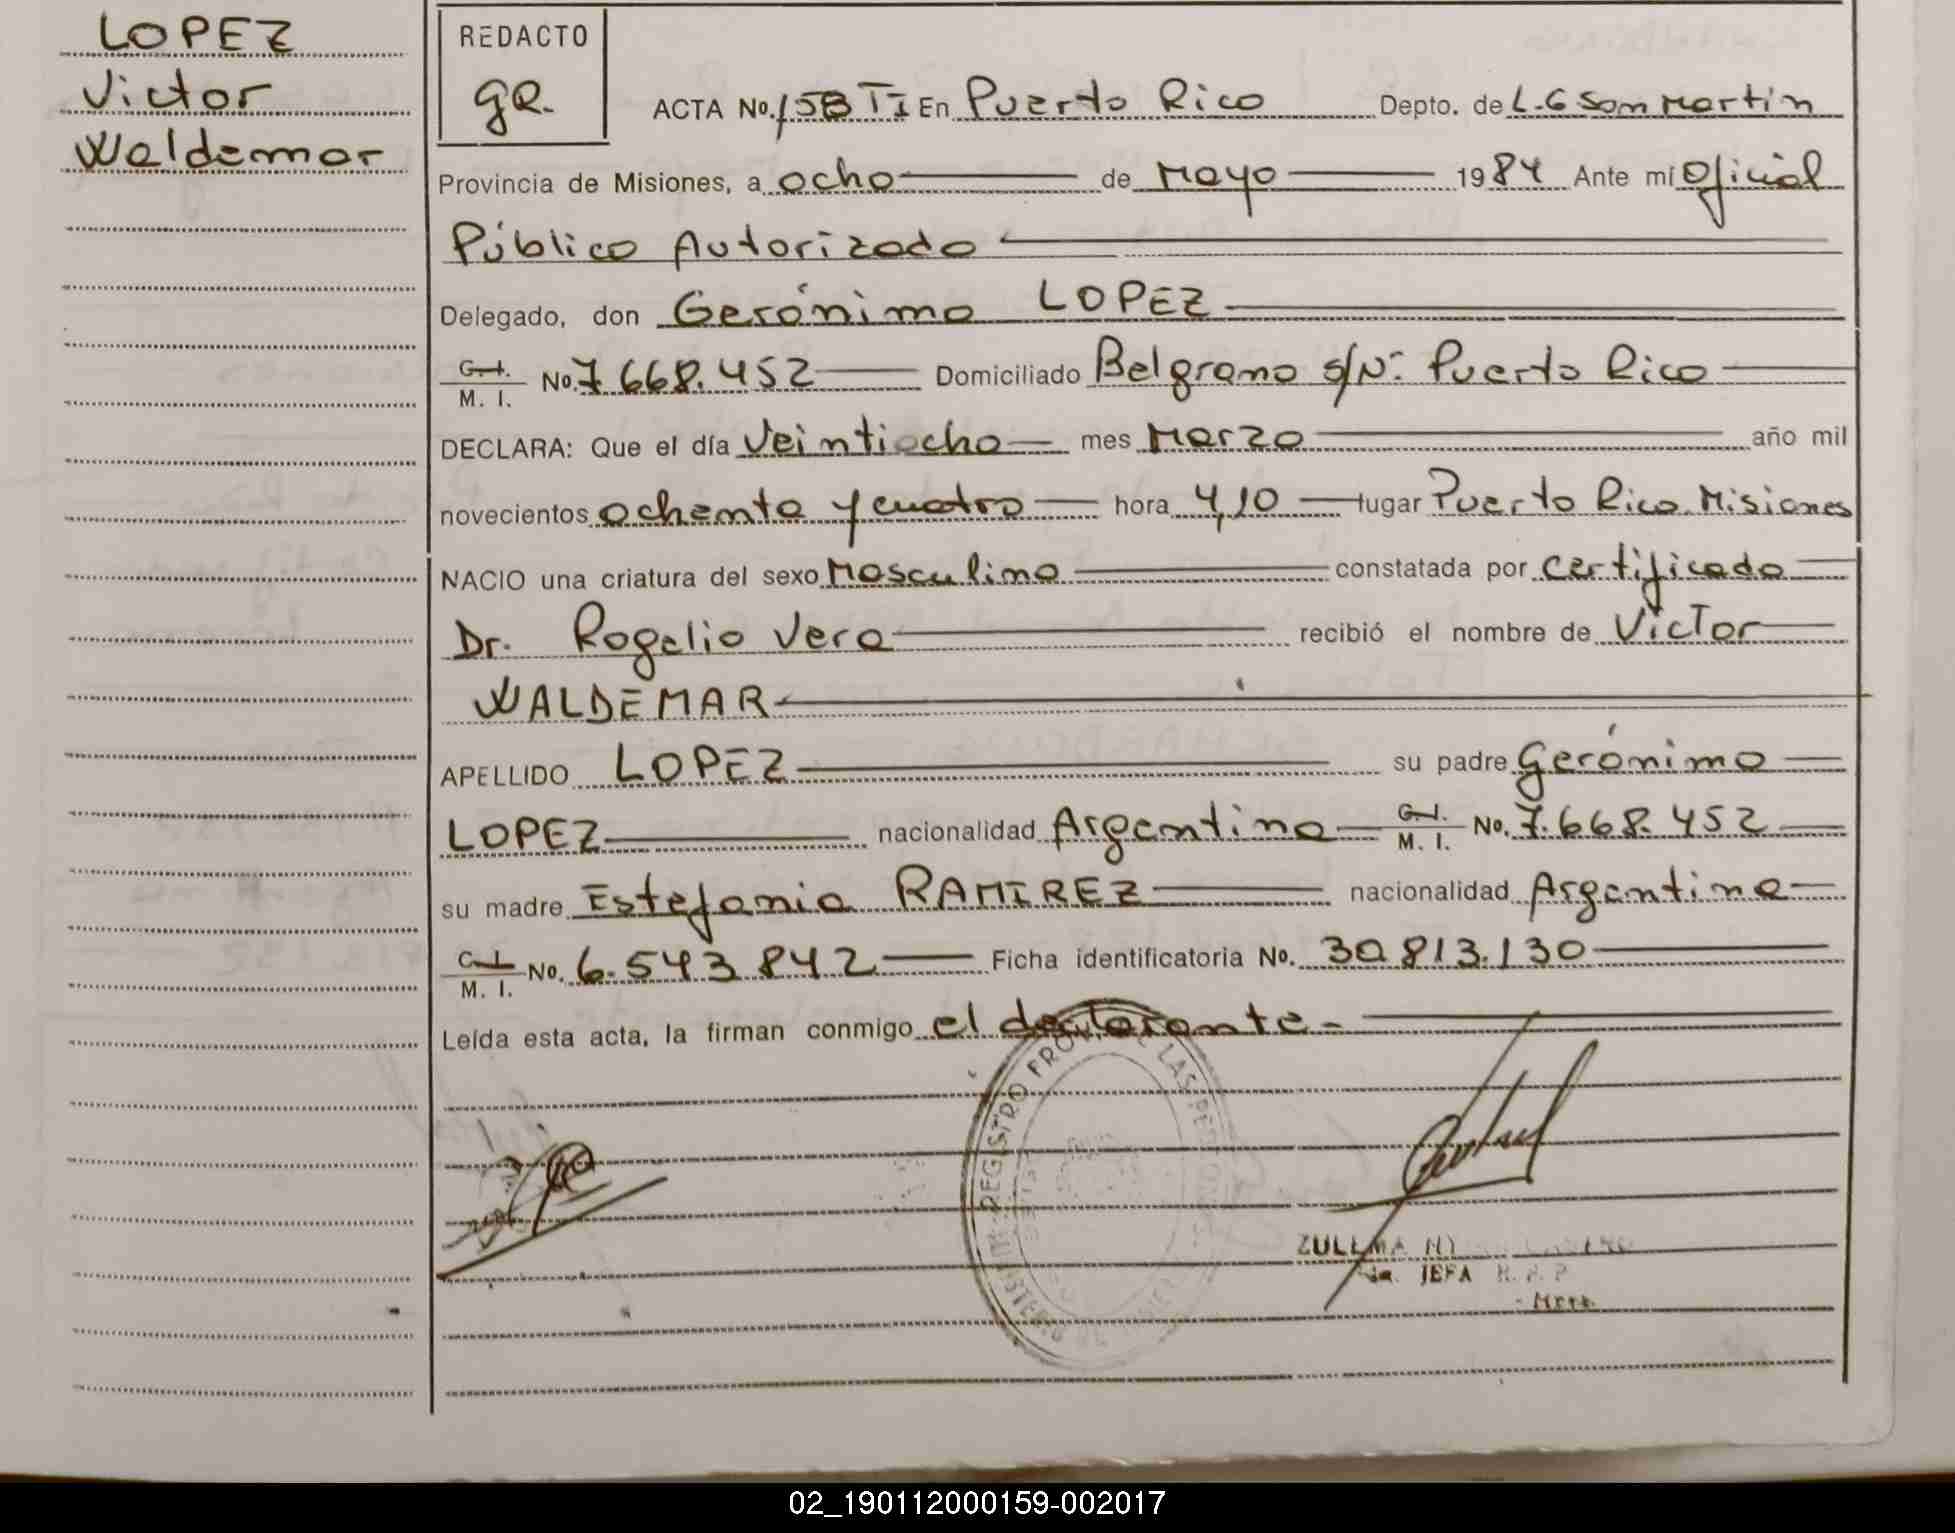 LOPEZ
Victor
Waldemar
REDACTO
gR.
ACTA No. 158 TI En Puerto Rico Depto. de L.G San Martín
Provincia de Misiones, a ocho de Mayo 1984 Ante mí Oficial
Público Autorizado
Delegado, don Gerónimo LOPEZ
C. I. M. I. No. 7.668.452 Domiciliado Belgrano s/Nº Puerto Rico
DECLARA: Que el día veintiocho mes Marzo año mil
novecientos ochenta y cuatro hora 4,10 lugar Puerto Rico. Misiones
NACIO una criatura del sexo Masculino constatada por certificado
Dr. Rogelio Vera recibió el nombre de Victor
WALDEMAR
APELLIDO LOPEZ su padre Gerónimo
LOPEZ nacionalidad Argentina C. I. M. I. No. 7.668.452
su madre Estefania RAMIREZ nacionalidad Argentina
C. I. M. I. No. 6.543.842 Ficha identificatoria No. 30.813.130
Leída esta acta, la firman conmigo el declarante.-
REGISTRO LAS PERSONAS
ZULLMA
JEFA
02_190112000159-002017